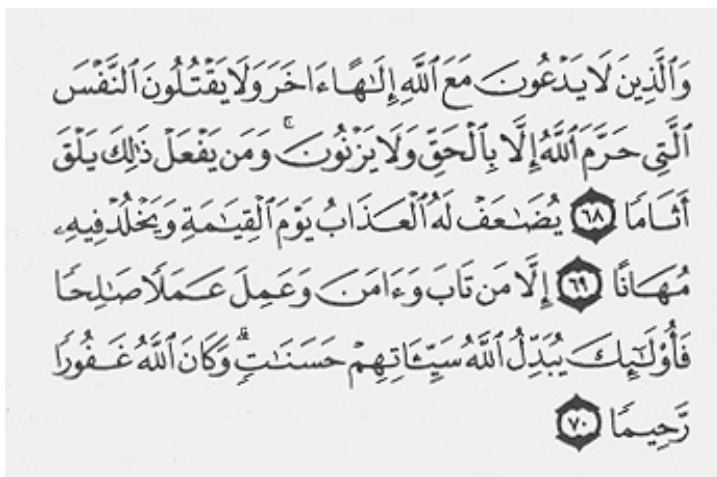 وَٱلَّذِينَ لَا يَدۡعُونَ مَعَ ٱللَّهِ إِلَٰهًا ءَاخَرَ وَلَا يَقۡتُلُونَ ٱلنَّفۡسَ
ٱلَّتِي حَرَّمَ ٱللَّهُ إِلَّا بِٱلۡحَقِّ وَلَا يَزۡنُونَۚ وَمَن يَفۡعَلۡ ذَٰلِكَ يَلۡقَ
أَثَامٗا ٦٨ يُضَٰعَفۡ لَهُ ٱلۡعَذَابُ يَوۡمَ ٱلۡقِيَٰمَةِ وَيَخۡلُدۡ فِيهِۦ
مُهَانًا ٦٩ إِلَّا مَن تَابَ وَءَامَنَ وَعَمِلَ عَمَلٗا صَٰلِحٗا
فَأُوْلَٰٓئِكَ يُبَدِّلُ ٱللَّهُ سَيِّـَٔاتِهِمۡ حَسَنَٰتٖۗ وَكَانَ ٱللَّهُ غَفُورٗا
رَّحِيمٗا ٧٠